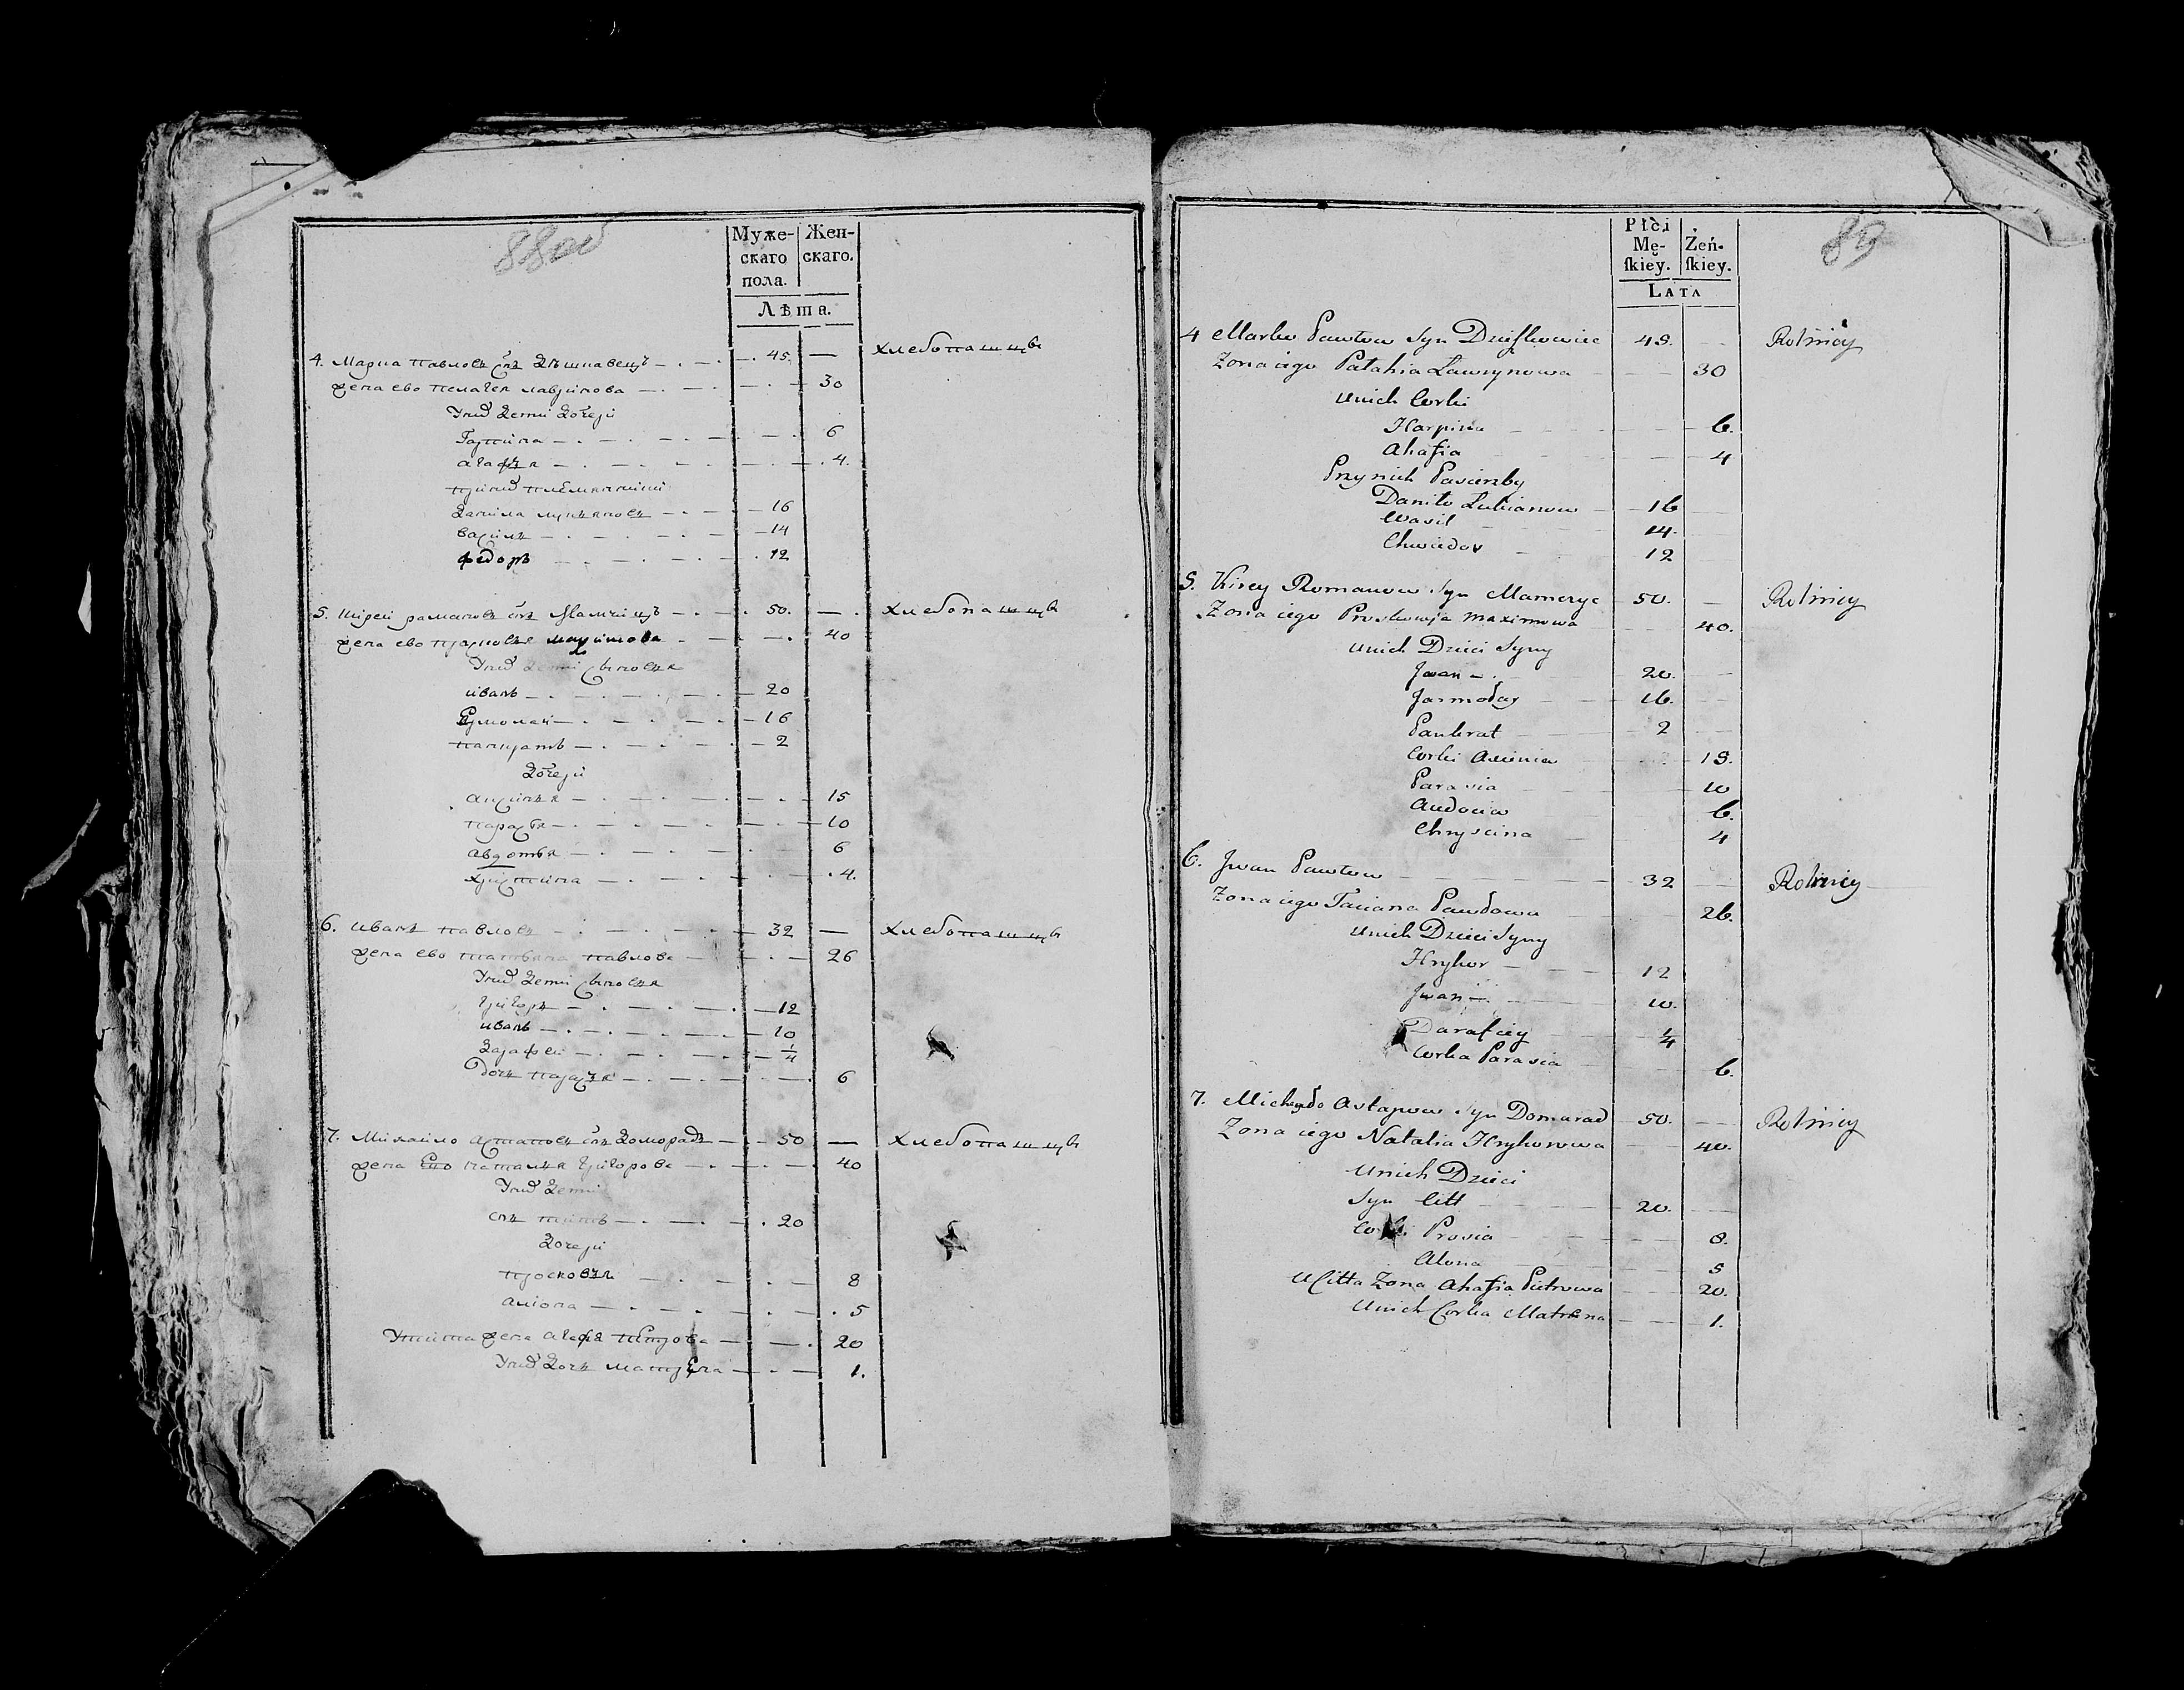 88об
Муже-
скаго
пола.
Жен-
скаго.
Лѣта.
4. Марка павловъ снъ Дѣшкавецъ 45. — хлебопашцы
жена ево пелагея лаврінова 30
У них дети дочери
Гарпіна 6
агафья 4.
при них племянники
Даніла лукяновъ 16
васіль 14
федоръ 12
5. романовъ снъ 50. — хлебопашцы
жена ево прасковья максімова 40
У них дети сыновья
иванъ 20
Ермолай 16
панкратъ 2
дочери
аксінья 15
парася 10
авдотья 6
хрістіна 4.
6. иванъ павловъ 32 — хлебопашцы
жена ево татьяна павлова 26
У них дети сыновья
григоръ 12
иванъ 10
Дарафеи 1/4
дочь парася 6
7. Михаило астаповъ снъ Доморадъ 50 — хлебопашцы
жена Ево наталья григорова 40
У них дети
снъ тітъ 20
Дочери
просковья 8
аліона 5
У тіта жена агафья петрова 20
У них дочь матрена 1.
89
Płci
Mę-
ſkiey.
Żeń-
ſkiey.
Lata
4 Marko Pawłow Syn Dzieszkowiec 45. Rolnicy
Zona iego Pałahia Ławrynowa 30
U nich Corki
Harpina 6.
Ahafia 4
Przy nich Pasierzby
Daniło Łukianow 16
Wasil 14.
Chwiedor 12
5. Kirey Romanow Syn Mameryc 50. — Rolnicy
Zona iego Proskowja Maximowa 40.
U nich Dzieci Syny
Jwan 20.
Jarmołay 16.
Pankrat 2
Corki Axienia 15.
Parasia 10
Audocia 6.
Chryscina 4
6. Jwan Pawłow 32 Rolnicy
Zona iego Taciana Pawłowa 26.
U nich Dzieci Syny
Hryhor 12
Jwan 10.
Darafiey 1/4
Corka Parasia 6.
7. Michayło Astapow Syn Domarad 50. — Rolnicy
Zona iego Natalia Hryhorowa 40.
U nich Dzieci
Syn Citt 20.
Corki Prosia 8.
Alona 5
U Citta Zona Ahafia Piotrowa 20.
U nich Corka Matrena 1.